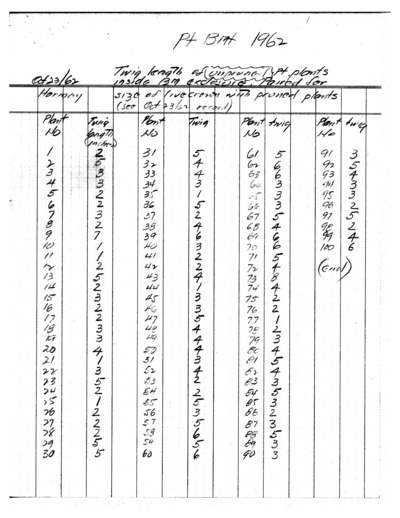 Pt BM 1962
Oct 23/62 Twig length of unpruned Pt plants
inside BM exclosure Paired for
Harmony size of live crown with pruned plants
(see Oct 23/62 record)
Plant No Twig length (inches) Plant No Twig Plant No twig Plant No twig
1 2 31 5 61 5 91 3
2 5 32 4 62 6 92 5
3 3 33 4 63 6 93 4
4 3 34 3 64 3 94 3
5 2 35 1 65 3 95 3
6 2 36 5 66 3 96 2
7 3 37 2 67 5 97 5
8 2 38 4 68 4 98 2
9 7 39 6 69 6 99 4
10 1 40 3 70 6 100 6
11 1 41 2 71 5
12 2 42 2 72 4 (end)
13 5 43 4 73 8
14 2 44 1 74 4
15 3 45 3 75 2
16 2 46 3 76 2
17 2 47 5 77 1
18 3 48 4 78 2
19 3 49 4 79 3
20 4 50 4 80 4
21 1 51 3 81 5
22 3 52 4 82 4
23 5 53 2 83 3
24 2 54 2 84 5
25 1 55 5 85 3
26 2 56 3 86 2
27 2 57 5 87 3
28 2 58 6 88 5
29 5 50 5 89 3
30 5 60 6 90 3